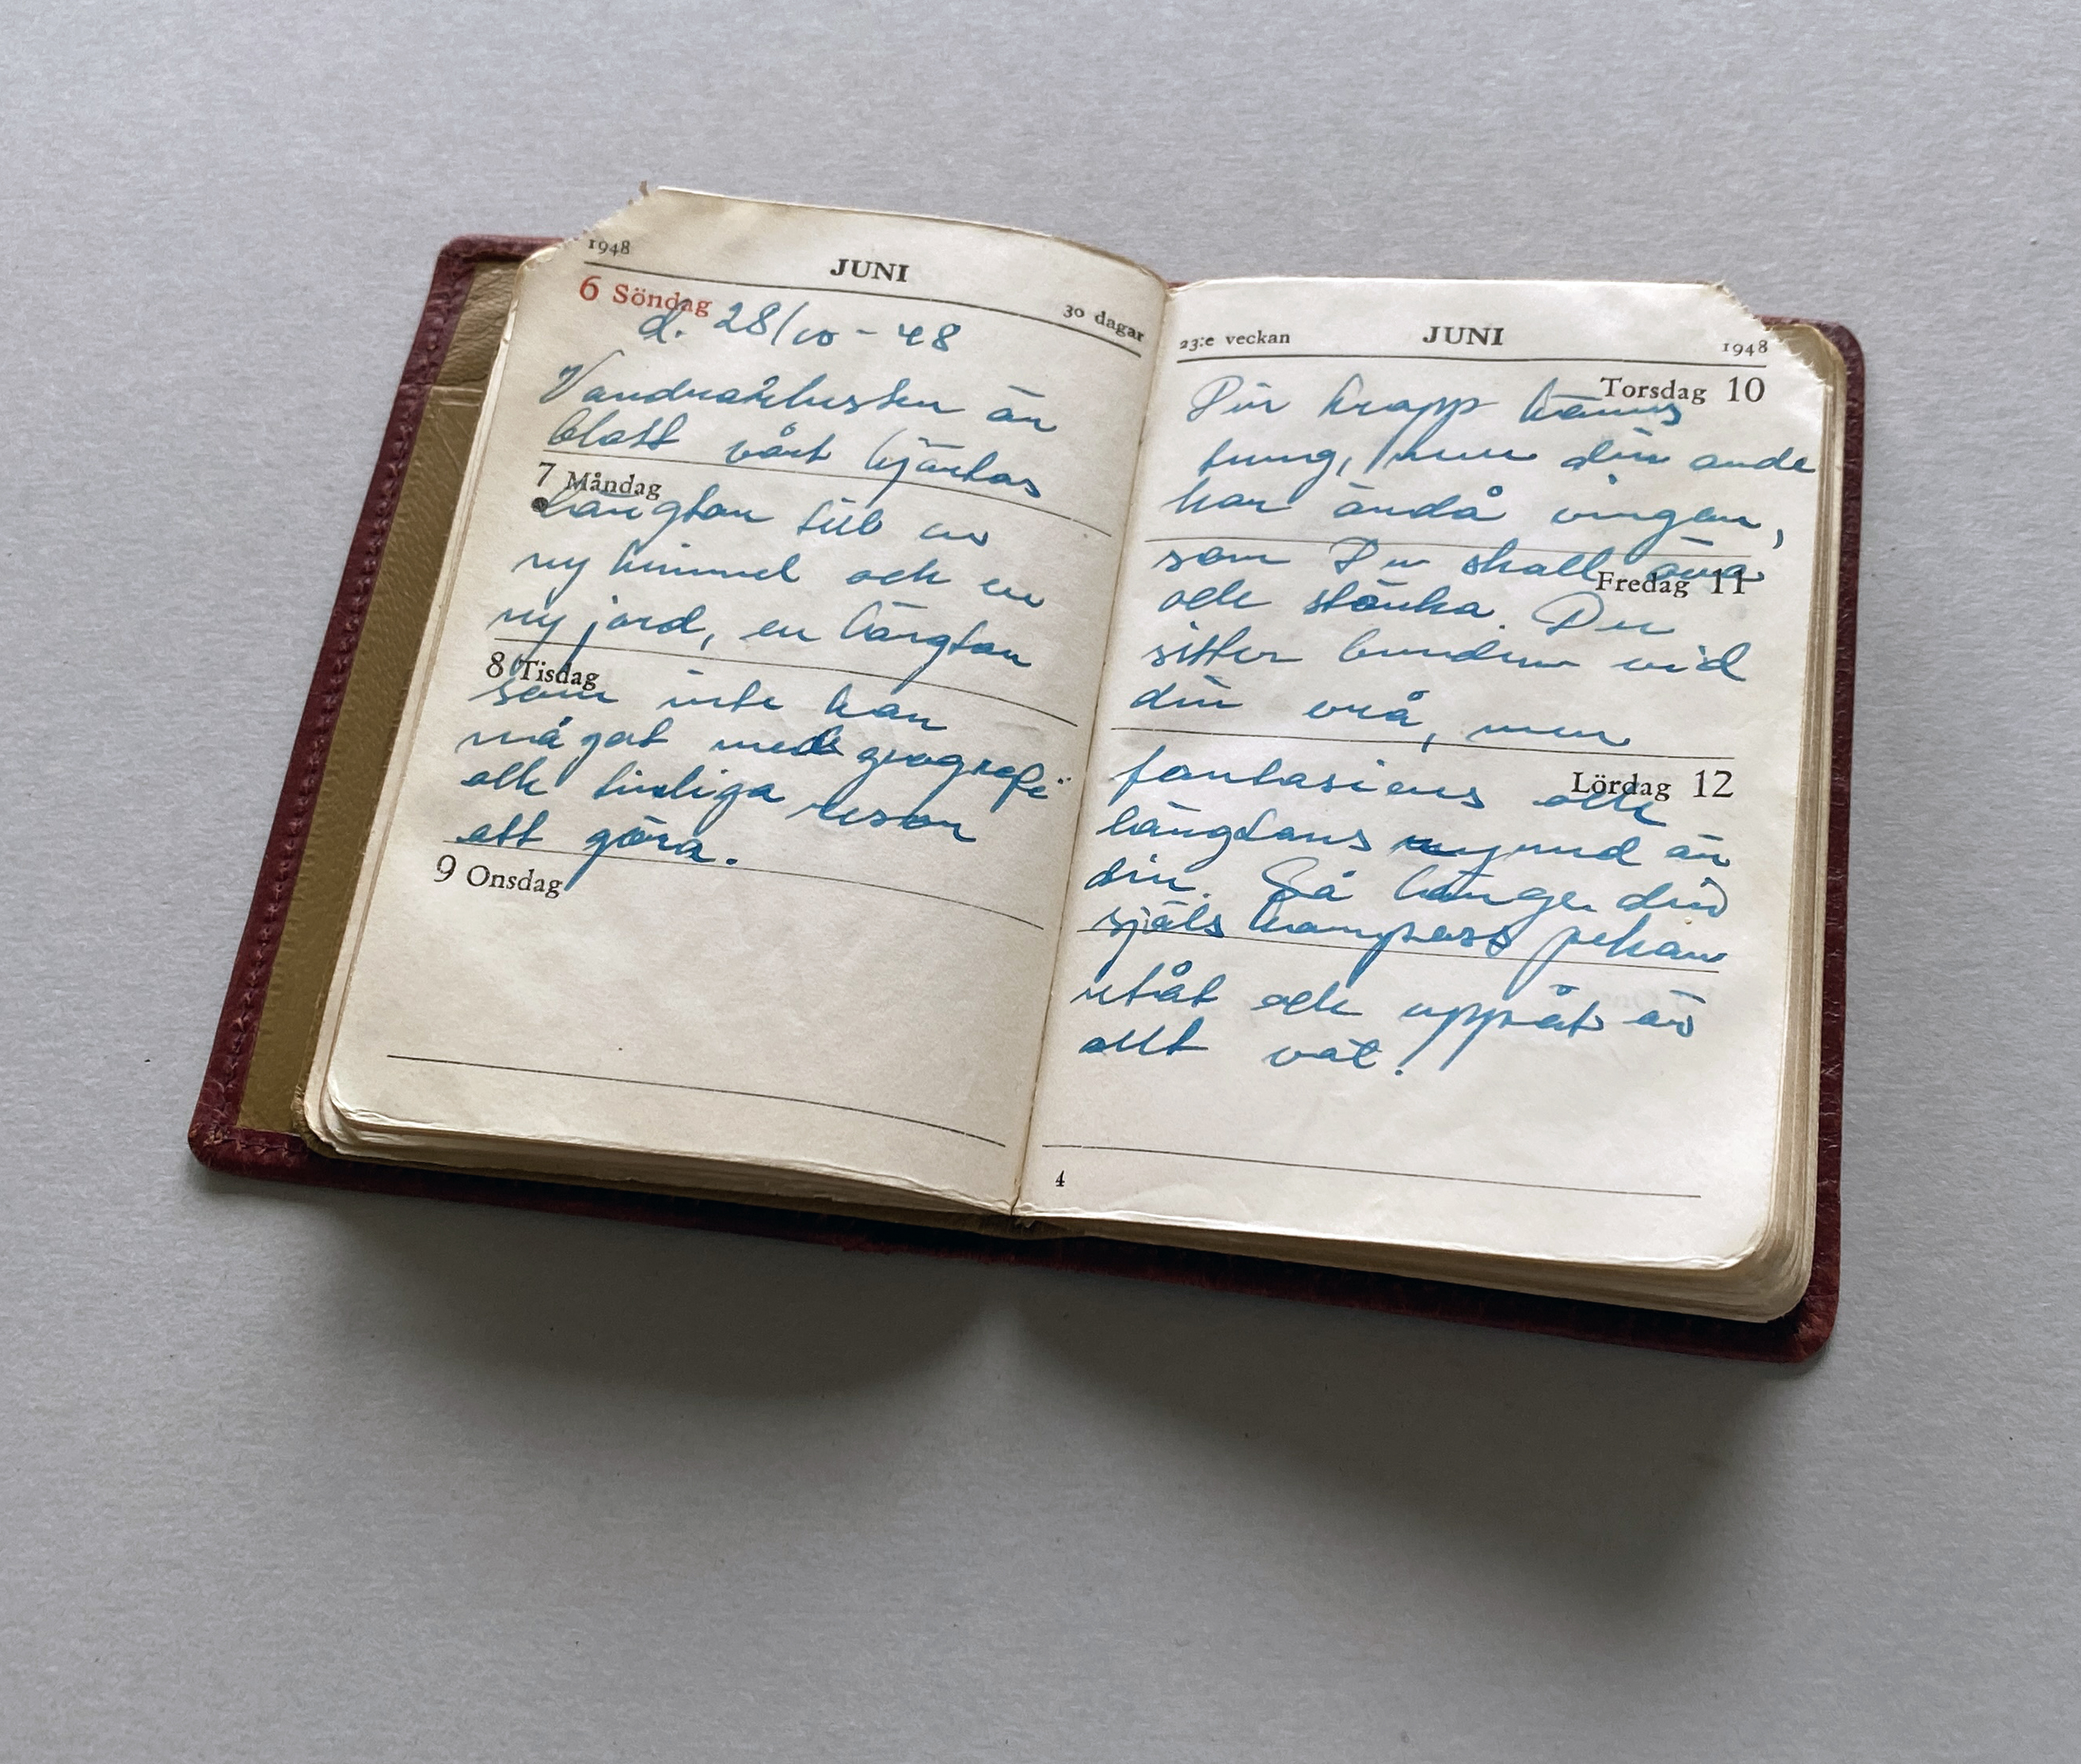 1948
JUNI
30 dagar
6 Söndag
d. 28/10 - 48
Vandrarelusten är
blott vårt hjärtas
7 Måndag
längtan till en
ny himmel och en
ny jord, en längtan
8 Tisdag
som inte kan
något med geografi
och timliga resor
att göra.
9 Onsdag
23:e veckan
JUNI
1948
Torsdag 10
Din kropp känns
tung, men din ande
har ändå vingar,
som Du skall öva
Fredag 11
och stärka. Du
sitter bunden vid
din vrå, men
Lördag 12
fantasiens och
längtans rymd är
din. Så länge din
själs kompass pekar
utåt och uppåt är
allt väl!
4